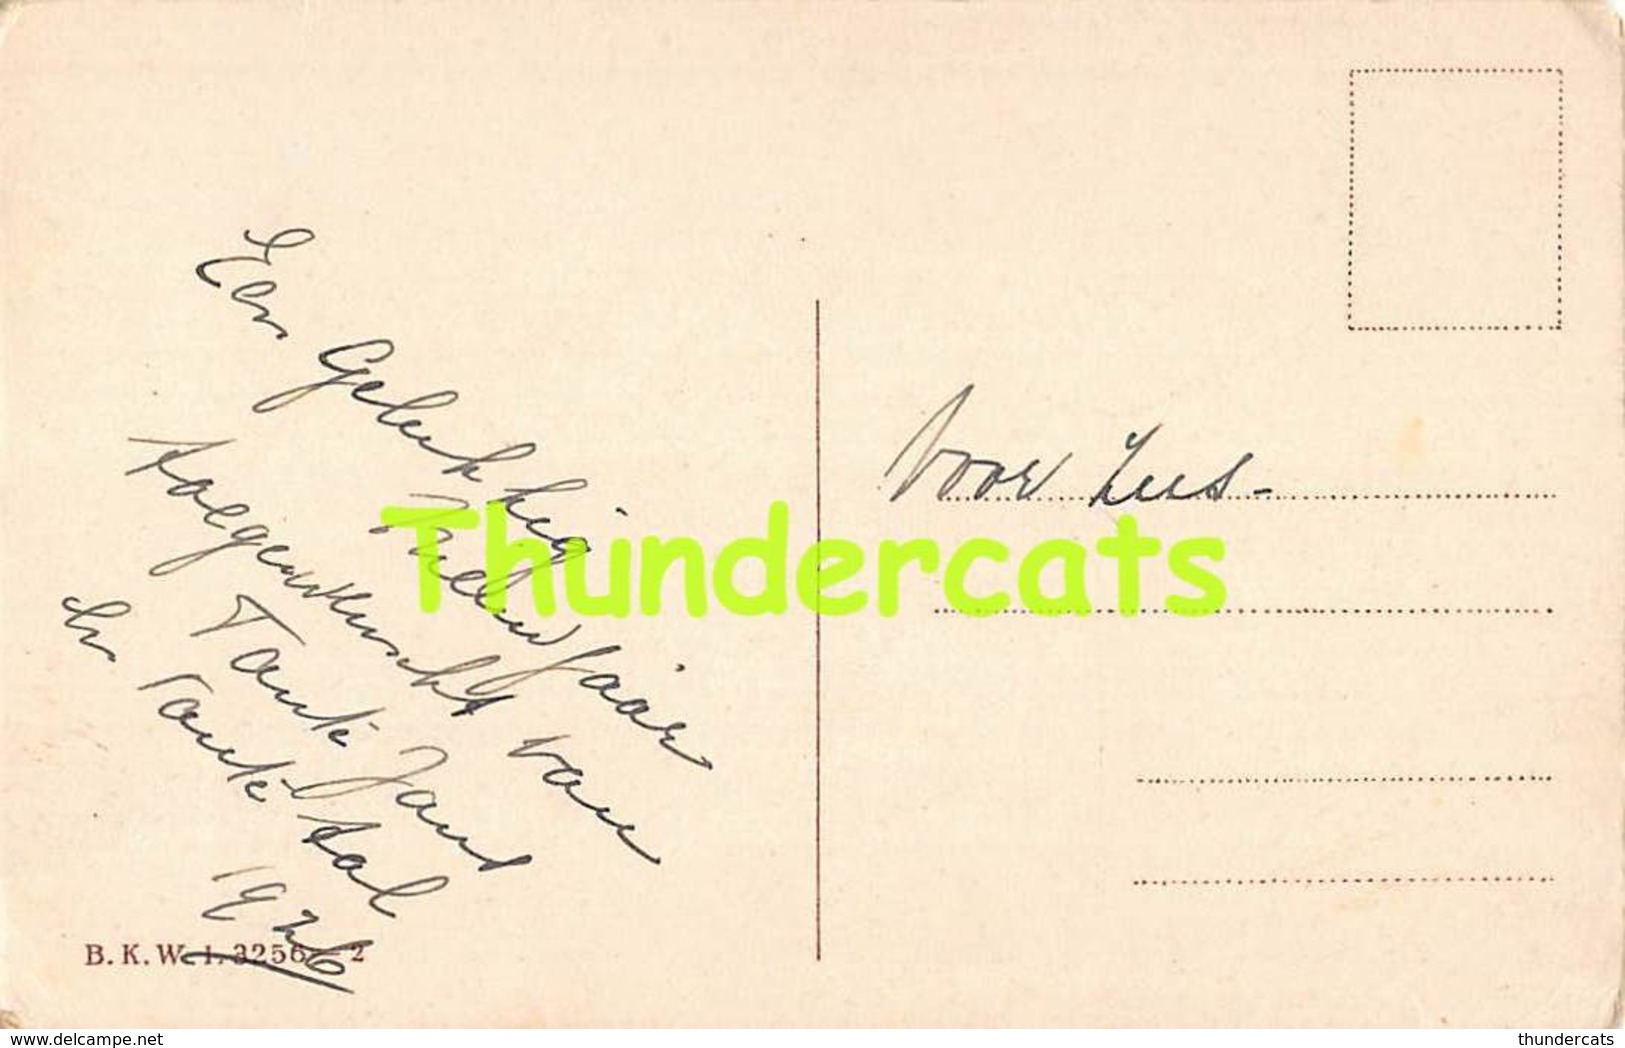 Een Gelukkig
Nieuwjaar
toegewenscht van
Tante Jans
En Tante Aal
1926
B. K. W. I. 3256 - 2
Voor Zus -
Thundercats
www.delcampe.net
thundercats